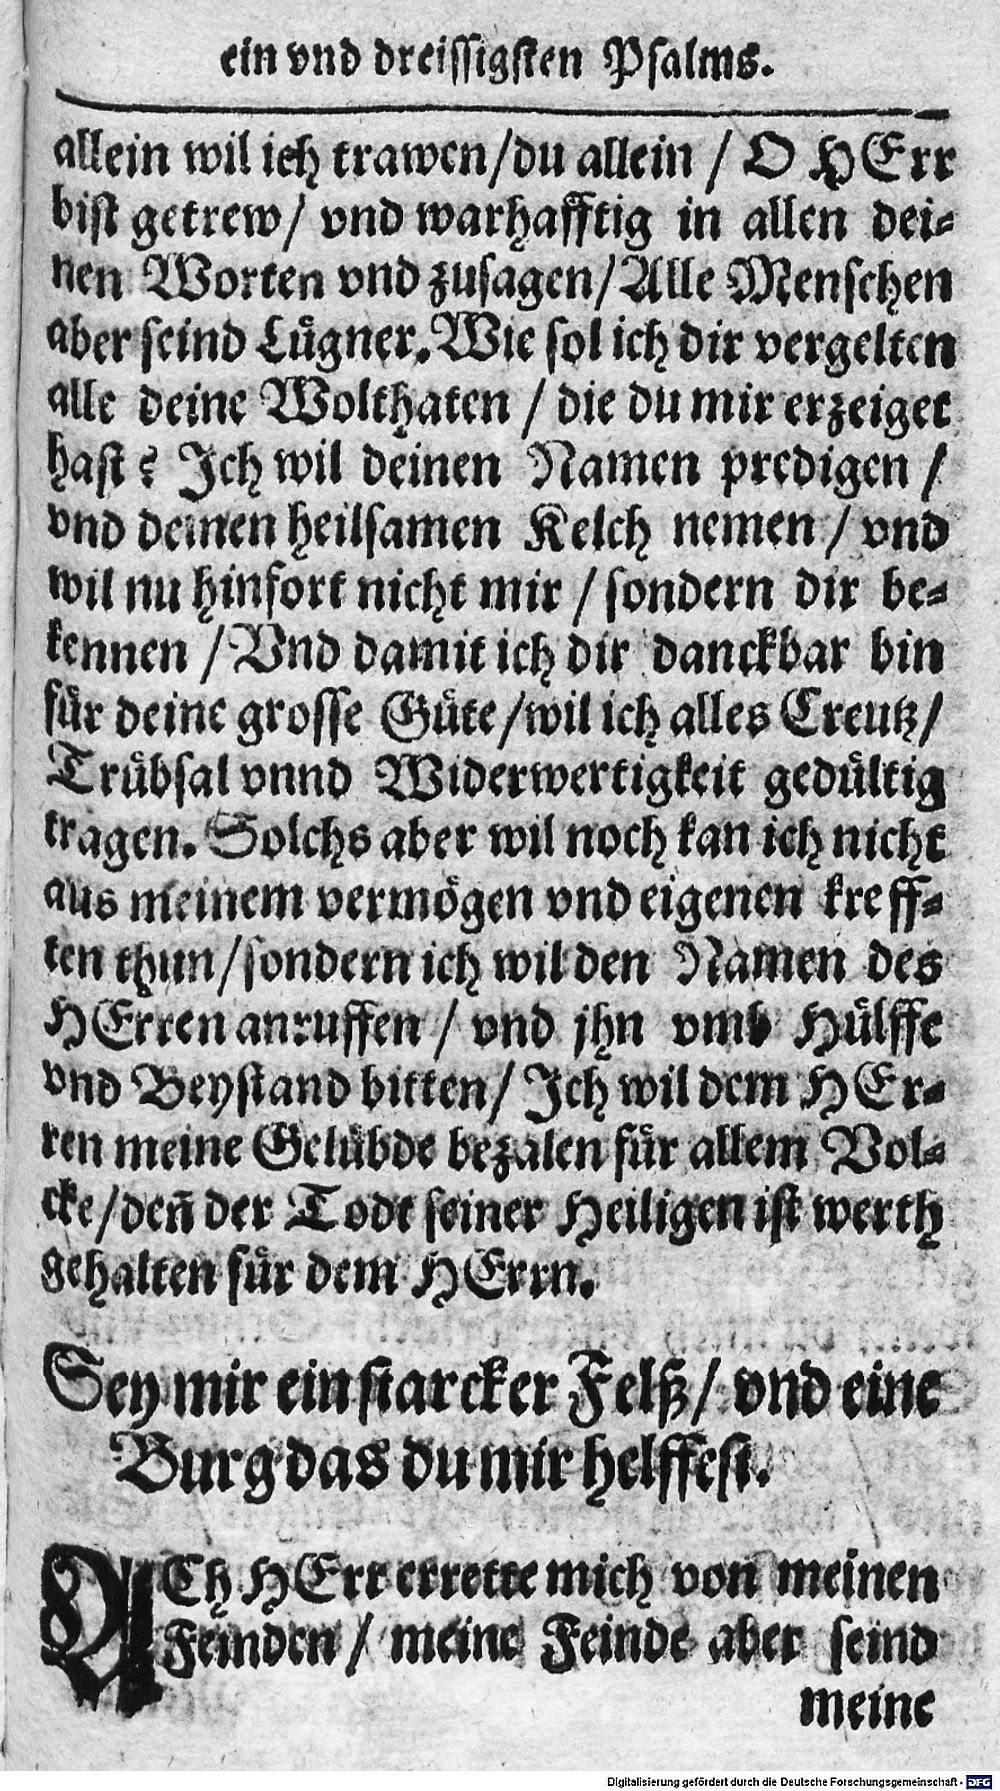 ein vnd dreissigsten Psalms.
allein wil ich trawen/du allein / O HErr
bist getrew/ vnd warhafftig in allen dei-
nen Worten vnd zusagen/Alle Menschen
aber seind Lügner. Wie sol ich dir vergelten
alle deine Wolthaten / die du mir erzeiget
hast? Ich wil deinen Namen predigen /
vnd deinen heilsamen Kelch nemen / vnd
wil nu hinfort nicht mir / sondern dir be-
kennen / Vnd damit ich dir danckbar bin
für deine grosse Güte/wil ich alles Creutz/
Trübsal vnnd Widerwertigkeit gedültig
tragen. Solchs aber wil noch kan ich nicht
aus meinem vermögen vnd eigenen kreff-
ten thun/sondern ich wil den Namen des
HErren anruffen / vnd jhn vmb Hülffe
vnd Beystand bitten/ Ich wil dem HEr-
ren meine Gelübde bezalen für allem Vol-
cke/deñ der Todt seiner Heiligen ist werth
gehalten für dem HErrn.
Sey mir ein starcker Felß/ vnd eine
Burg das du mir helffest.
ACh HErr errette mich von meinen
Feinden / meine Feinde aber seind
meine
Digitalisierung gefördert durch die Deutsche Forschungsgemeinschaft - DFG